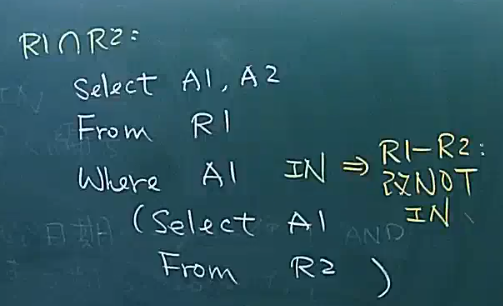 R1∩R2:
Select A1, A2
From R1
Where A1 IN ⇒ R1-R2:
改NOT
IN
(Select A1
From R2)
AND